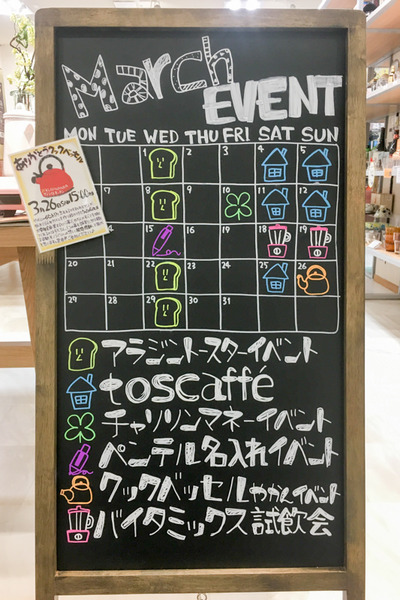 March
EVENT
MON TUE WED THU FRI SAT SUN
1 2 3 4 5
7 8 9 10 11 12
14 15 16 17 18 19
20 21 22 23 24 25 26
27 28 29 30 31
3月26日 15:00
アラジントースターイベント
toscaffé
チャリリンマネーイベント
ペンテル名入れイベント
クックベッセルやかんイベント
バイタミックス試飲会